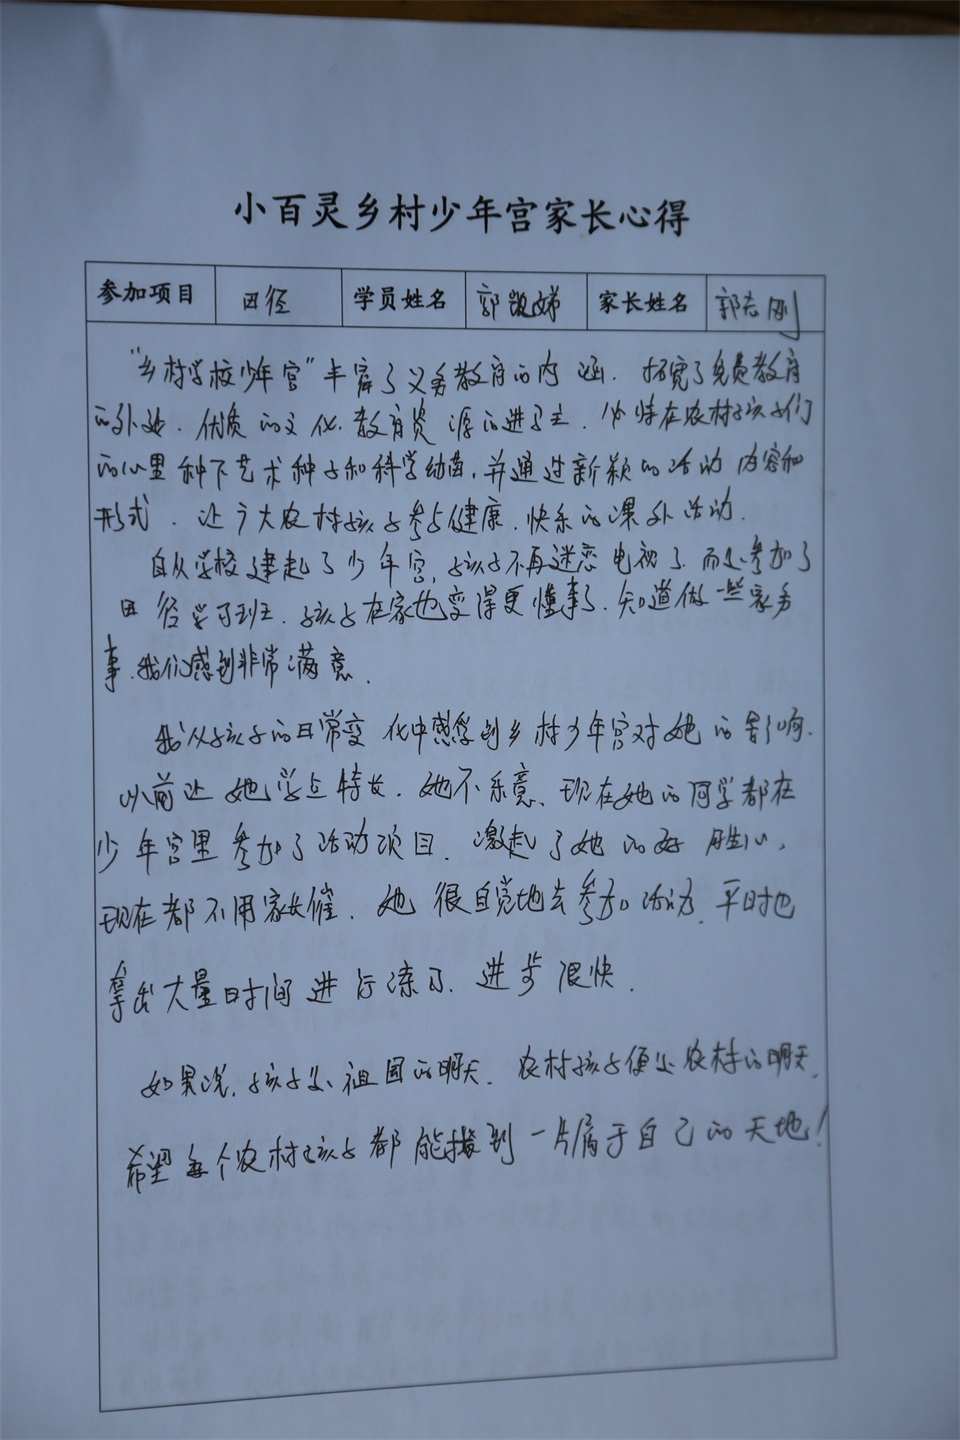 小百灵乡村少年宫家长心得
参加项目 田径 学员姓名 郭凯娣 家长姓名 郭志刚
“乡村学校少年宫”丰富了义务教育的内涵.拓宽了免费教育
的外延.优质的文化.教育资源的进驻.必将在农村孩子们
的心里种下艺术种子和科学幼苗,并通过新颖的活动内容和
形式.让广大农村孩子参与健康.快乐的课外活动.
自从学校建起了少年宫,孩子不再迷恋电视了.而是参加了
田径学习班.孩子在家也变得更懂事了.知道做一些家务
事.我们感到非常满意.
我从孩子的日常变化中感受到乡村少年宫对她的影响.
以前让她学点特长.她不乐意、现在她的同学都在
少年宫里参加了活动项目.激起了她的好胜心,
现在都不用家长催.她很自觉地去参加活动.平时也
拿出大量时间进行练习.进步很快.
如果说,孩子是祖国的明天.农村孩子便是农村的明天.
希望每个农村孩子都能找到一片属于自己的天地!